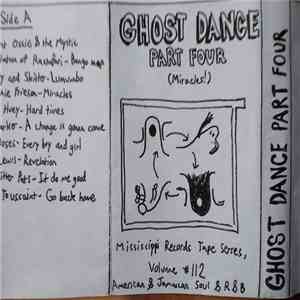 Side A
Ossie & the Mystic
Revelation of Rastafari- Bongo man
and Skitter- Lumumbo
Prieson- Miracles
Huey- Hard times
Parker- A change is gonna come
Roses- Every boy and girl
Lewis- Revelation
Pots- It do me good
Toussaint- Go back home
GHOST DANCE
PART FOUR
(Miracles!)
Mississippi Records Tape Series,
Volume #112
American & Jamaican Soul & R&B
GHOST DANCE PART FOUR